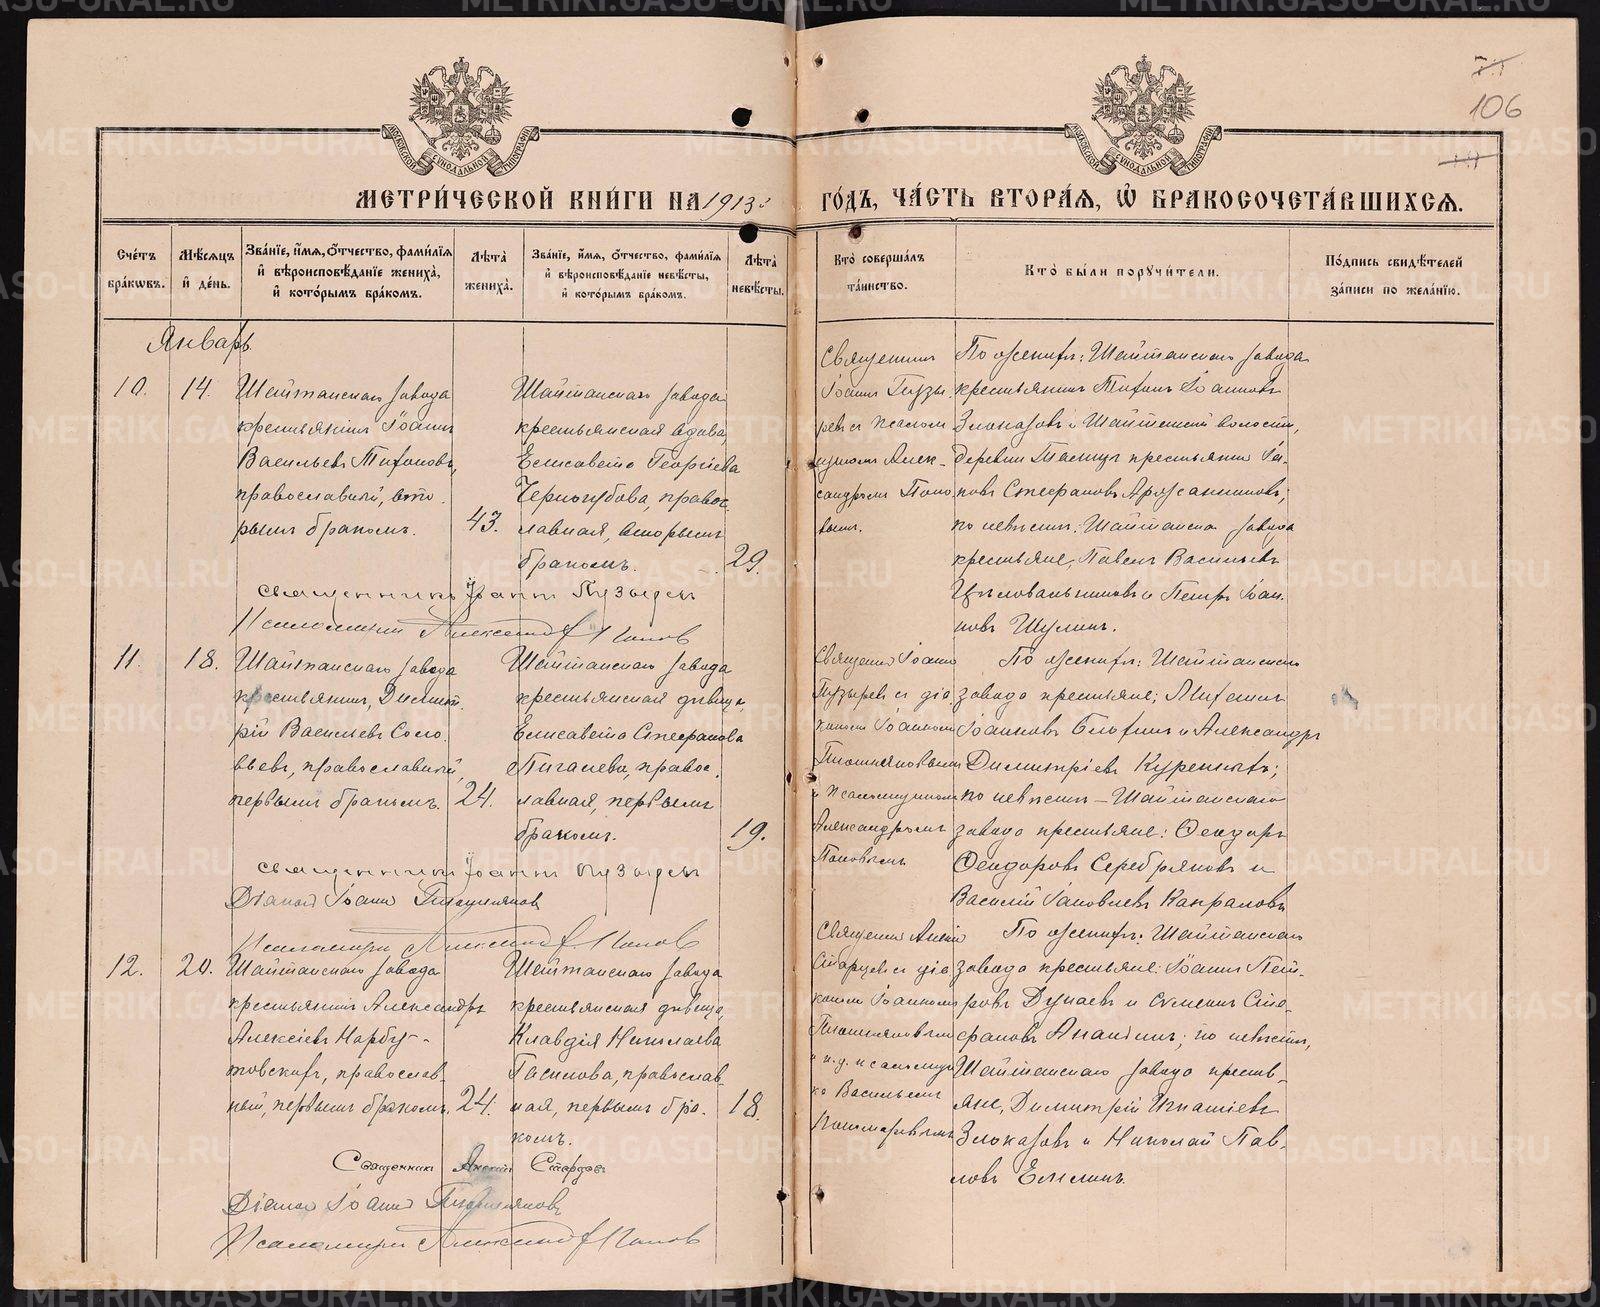 106
МЕТРИ́ЧЕСКОЙ КНИ́ГИ НА 1913
ГО́ДЪ, ЧА́СТЬ ВТОРА́Я, Ѿ БРАКОСОЧЕТА́ВШИХСЯ.
Сче́тъ бра́кѡвъ.
Мѣ́сяцъ и҆ де́нь.
Зва́нїе, и҆́мя, ѻ҆́тчество, фами́лїя
и҆ вѣроисповѣ́данїе жениха̀,
и҆ кото́рымъ бра́комъ.
Лѣ́та̀ жениха̀.
Зва́нїе, и҆́мя, ѻ҆́тчество, фами́лїя
и҆ вѣроисповѣ́данїе невѣ́сты,
и҆ кото́рымъ бра́комъ.
Лѣ́та̀ невѣ́сты.
Кто̀ соверша́лъ
та́инство.
Кто̀ бы́ли порꙋчи́тели.
По́дпись свидѣ́телей
за́писи по жела́нїю.
Январь.
10.
14.
Шайтанскаго завода
крестьянинъ Іоаннъ
Васильевъ Тихоновъ,
православный, вто-
рымъ бракомъ.
43.
Шайтанскаго завода
крестьянская вдова
Елисавета Георгіева
Черногубова, правос-
лавная, вторымъ
бракомъ.
29.
Священникъ
Іоаннъ Пузы-
ревъ съ псалом-
щикомъ Алек-
сандромъ Попо-
вымъ.
По женихѣ: Шайтанскаго завода
крестьянинъ Тихонъ Іоанновъ
Злоказовъ и Шайтанской волости,
деревни Талицы крестьянинъ Іа-
ковъ Стефановъ
по невѣстѣ: Шайтанскаго завода
крестьяне, Павелъ Васильевъ
Цѣловальниковъ и Петръ Іоан-
новъ Шулинъ.
Священникъ Іоаннъ Пузыревъ
Псаломщикъ Александръ Поповъ
11.
18.
Шайтанскаго завода
крестьянинъ, Димит-
рій Васильевъ Соло-
вьевъ, православный,
первымъ бракомъ.
24.
Шайтанскаго завода
крестьянская дѣвица
Елисавета Стефанова
Пигалева, правос-
лавная, первымъ
бракомъ.
19.
Священникъ Іоаннъ
Пузыревъ съ діа-
кономъ Іоанномъ
Плотниковымъ
и псаломщикомъ
Александромъ
Поповымъ
По женихѣ: Шайтанскаго
завода крестьяне;
Іоанновъ и Александръ
Димитріевъ Куренныхъ;
по невѣстѣ – Шайтанскаго
завода крестьяне: Ѳеодоръ
Ѳеодоровъ Серебряковъ и
Василій Іаковлевъ Капраловъ
Священникъ Іоаннъ Пузыревъ
Діаконъ Іоаннъ Плотниковъ
Псаломщикъ Александръ Поповъ
12.
20.
Шайтанскаго завода
крестьянинъ Александръ
Алексіевъ Нарбу-
товскихъ, православ-
ный, первымъ бракомъ.
24.
Шайтанскаго завода
крестьянская дѣвица,
Клавдія Николаева
Гасилова, православ-
ная, первымъ бра-
комъ.
18.
Старцевъ съ діа-
кономъ Іоанномъ
Плотниковымъ
и и.д. псаломщи-
ка Василіемъ
По женихѣ: Шайтанскаго
завода крестьяне: Іоаннъ Пет-
ровъ Дунаевъ и Сѵмеонъ Сте-
фановъ по невѣстѣ,
Шайтанскаго завода кресть-
яне, Димитрій Игнатіевъ
Злоказовъ и Николай Пав-
ловъ Емлинъ.
Священникъ Старцевъ
Діаконъ Іоаннъ Плотниковъ
Псаломщикъ Александръ Поповъ
METRIKI.GASO-URAL.RU